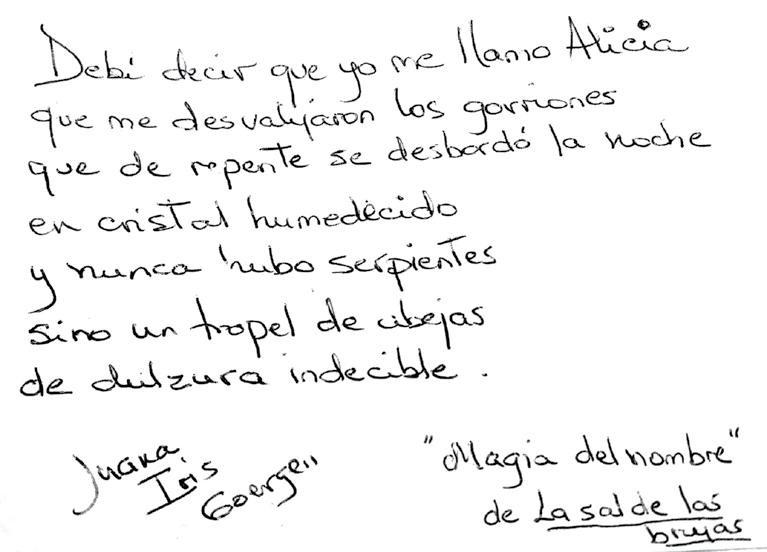 Debí decir que yo me llamo Alicia
que me desvalijaron los gorriones
que de repente se desbordó la noche
en cristal humedecido
y nunca hubo serpientes
sino un tropel de abejas
de dulzura indecible.
Juana
Iris
Goergen
"Magia del nombre"
de La sal de las
brujas